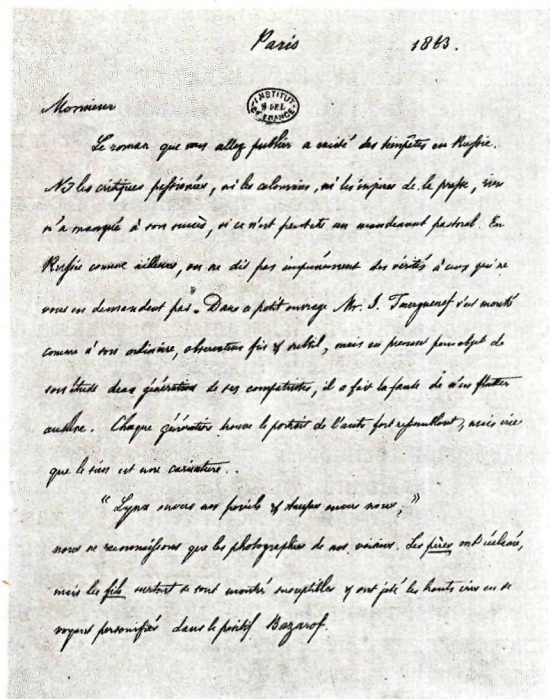 Paris 1863.
INSTITUT
DE FRANCE
Monsieur
Le roman que vous allez publier a excité des tempêtes en Russie.
Ni les critiques passionées, ni les calomnies, ni les injures de la presse, rien
n'a manqué à son succès, si ce n'est peut-être un mandement pastoral. En
Russie comme ailleurs, on ne dit pas impunément des vérités à ceux qui ne
vous en demandent pas. Dans ce petit ouvrage Mr. I. Tourguenef s'est montré
comme à son ordinaire, observateur fin & subtil, mais en prenant pour objet de
son étude deux générations de ses compatriotes, il a fait la faute de n'en flatter
aucune. Chaque génération trouve le portrait de l'autre fort ressemblant, mais crie
que le sien est une caricature..
"Lynx envers nos pareils & taupes envers nous,"
nous ne reconnaissons que les photographies de nos voisins. Les pères ont réclamé,
mais les fils surtout se sont montrés susceptibles & ont jeté les hauts cris en se
voyant personnifiés dans le positif Bazarof.